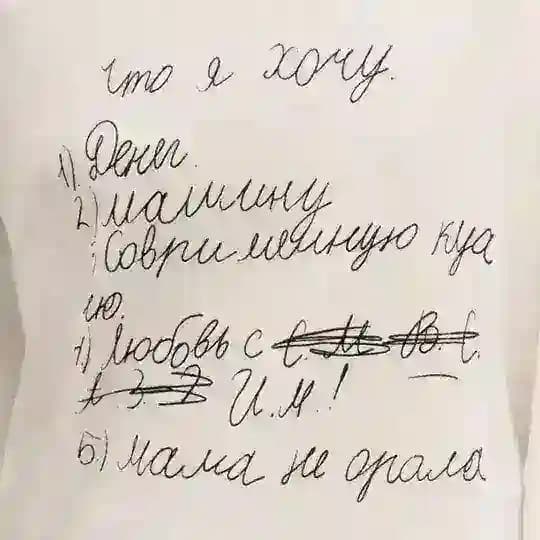 что я хочу.
1) Денег.
2) машину
Современную куа
ю.
4) любовь с С. М. В. С.
А. З. И.М.!
5) мама не орала